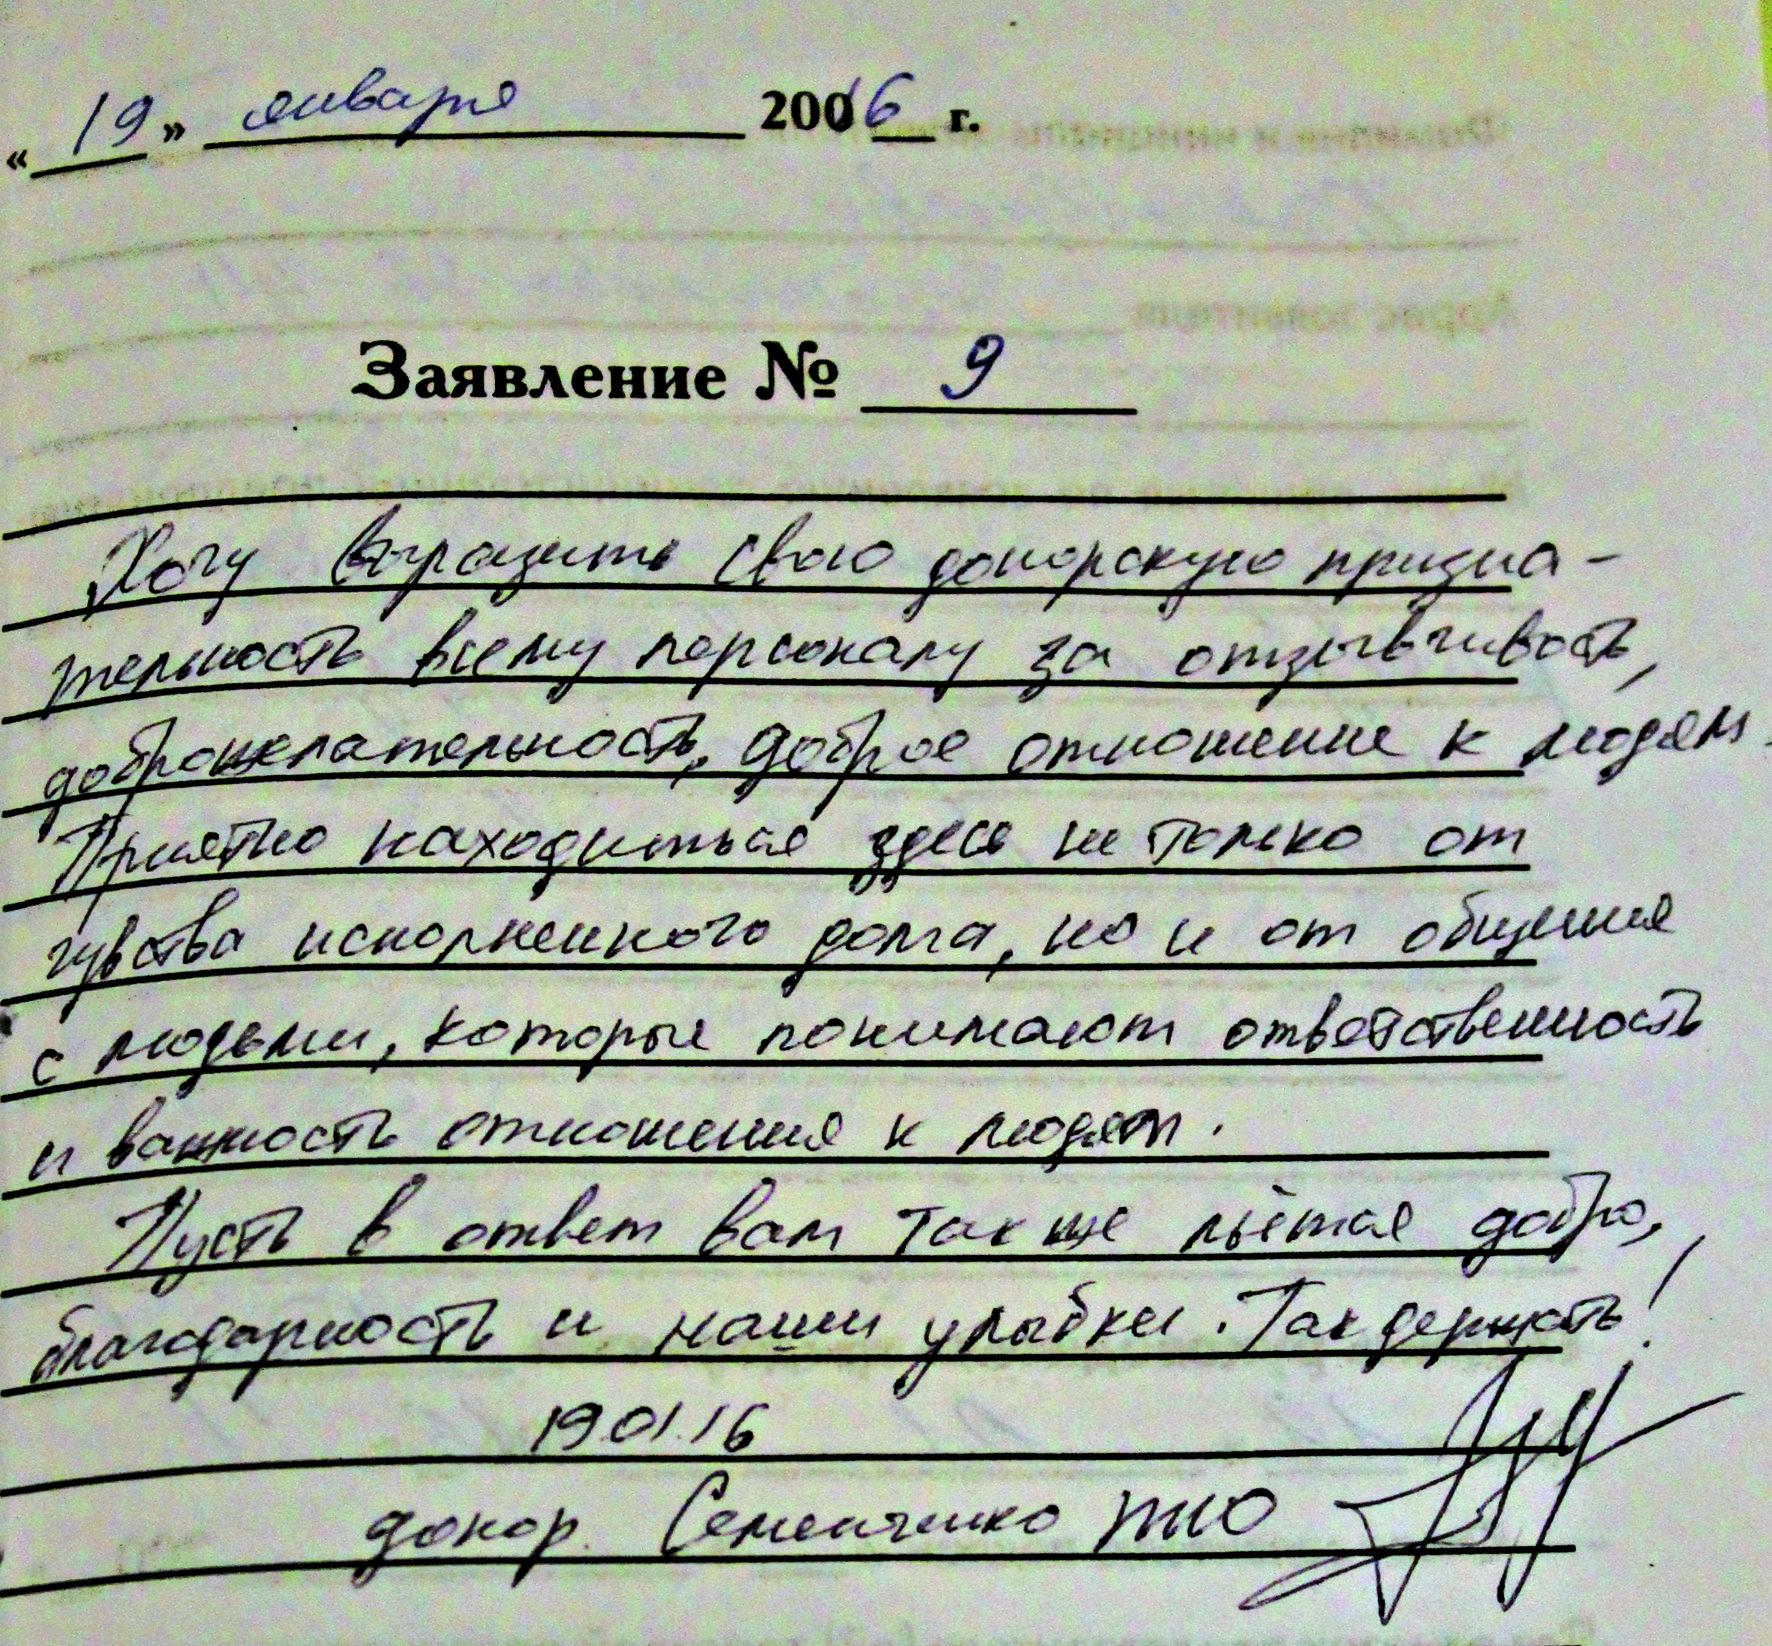 « 19 » января 2016 г.
Заявление № 9
Хочу выразить свою донорскую призна-
тельность всему персоналу за отзывчивость,
доброжелательность, доброе отношение к людям.
Приятно находиться здесь не только от
чувства исполненного долга, но и от общения
с людьми, которые понимают ответственность
и важность отношения к людям.
Пусть в ответ вам также льётся добро,
благодарность и наши улыбки. Так держать!
19.01.16
донор. Семенченко